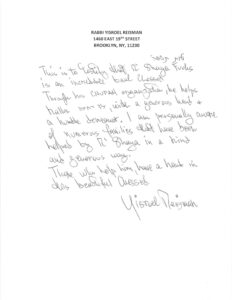 RABBI YISROEL REISMAN
1460 EAST 19TH STREET
BROOKLYN, NY, 11230
This is to certify that R' Shaya Fuchs
is an incredible baal chessed.
Through his organization, he helps
with a generous heart &
a humble demeanor. I am personally aware
of numerous families that have been
helped by R' Shaya in a kind
and generous way.
Those who help him have a hand in
this beautiful chessed.
Yisroel Reisman